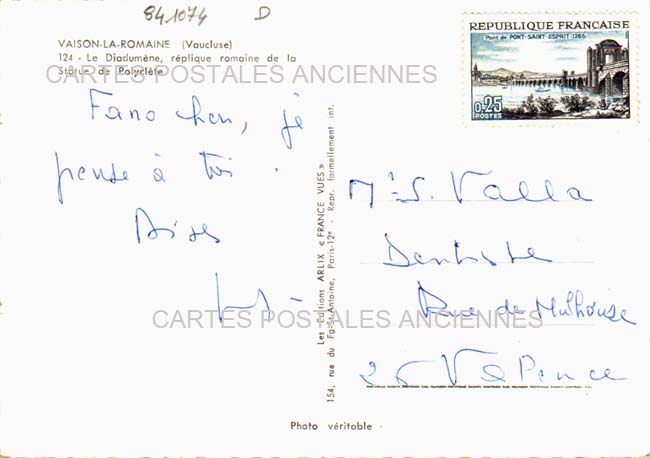 841074 D
VAISON-LA-ROMAINE (Vaucluse)
124 - Le Diadumène, réplique romaine de la
Statue de Polyclète
CARTES POSTALES ANCIENNES
Fano chou, je
pense à toi.
Bises
REPUBLIQUE FRANÇAISE
Pont de PONT-SAINT-ESPRIT 1265
0,25
POSTES
Les Editions ARLIX « FRANCE VUES »
154, rue du Fg-St-Antoine, Paris-12e - Repr. formellement int.
S. Valla
Dentiste
Rue de Mulhouse
26 Valence
CARTES POSTALES ANCIENNES
Photo véritable